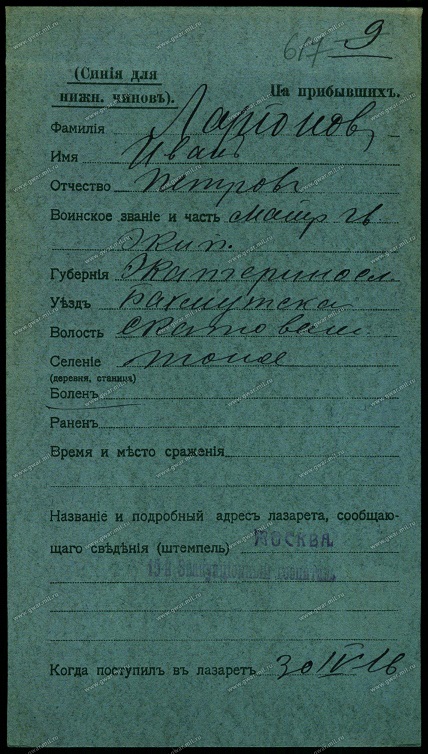 617 9
(Синія для
нижн. чиновъ).
На прибывшихъ.
Фамилія Ларіонов
Имя Иванъ
Отчество Петровъ
Воинское званіе и часть матр. гв.
Экип.
Губернія Екатериносл
Уѣздъ Бахмутска
Волость
Селеніе тоже
(деревня, станица)
Боленъ
Раненъ
Время и мѣсто сраженія
Названіе и подробный адресъ лазарета, сообщаю-
щаго свѣдѣнія (штемпель) МОСКВА.
Когда поступилъ въ лазаретъ 30 IV 16
www.gwar.mil.ru